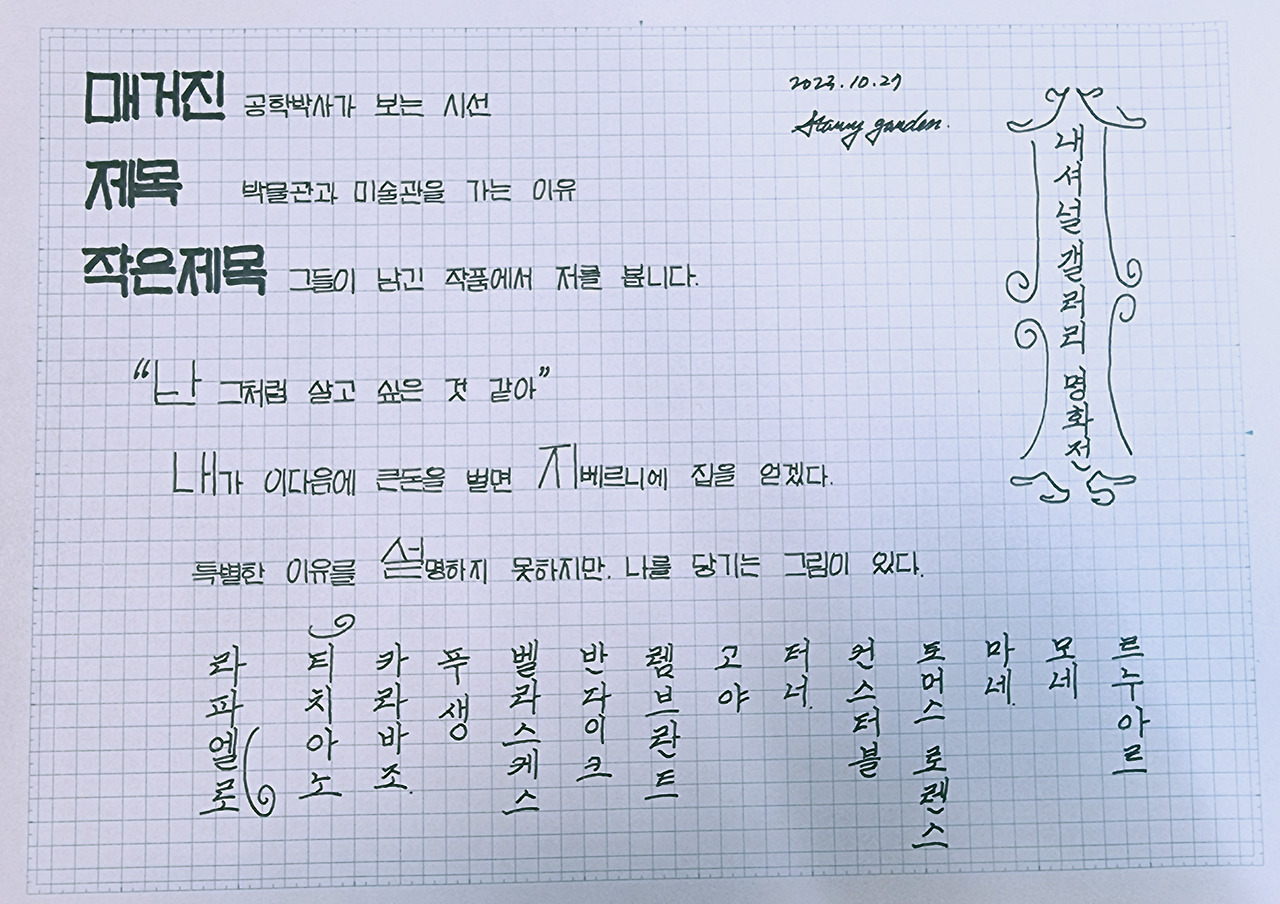 매거진 공학박사가 보는 시선
2023.10.27
Starry garden.
제목 박물관과 미술관을 가는 이유
작은제목 그들이 남긴 작품에서 저를 봅니다.
내셔널갤러리 명화전
"난 그처럼 살고 싶은 것 같아"
내가 이다음에 큰돈을 벌면 지베르니에 집을 얻겠다.
특별한 이유를 설명하지 못하지만. 나를 당기는 그림이 있다.
라파엘로
티치아노
카라바조.
푸생
벨라스케스
반다이크
렘브란트
고야
터너.
컨스터블
토머스 로렌스
마네.
모네
르누아르